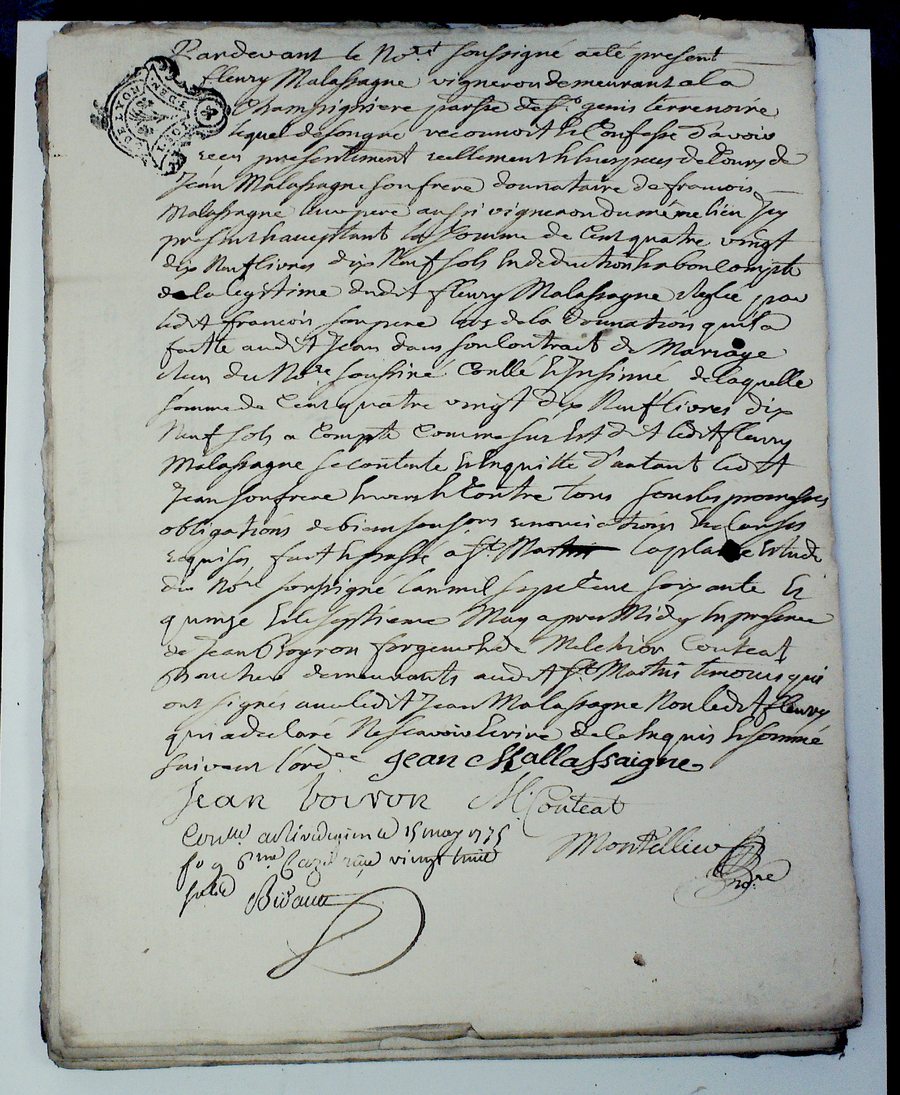 Pardevant le No.re soussigné a eté present
fleury Malassagne vigneron demeurant a la
Champsigniere parsse de st genis terrenoire
lequel de son gre reconnoit & Confesse d'avoir
receu presentement reellement & en especes de Cours de
Jean Malassagne son frere dounataire de francois
Malassagne leur pere aussi vigneron du même lieu Icy
present & acceptant la somme de Cent quatre vingt
dix Neuf livres dix Neuf sols En deduction & a bon Compte
de la legitime dudit fleury Malassagne reglée par
ledit francois son pere lors de la dounation qu'il a
faitte audit Jean dans son Contrat de Mariage
recu du No.re soussigné Conllé & Insinué de laquelle
somme de Cent quatre vingt dix Neuf livres dix
Neuf sols a Compte Comme sus Est dit ledit fleury
Malassagne se contente & En quitte d'autant ledit
Jean son frere Envers & Contre tous sous les promesses
obligations de biens renonciations & Clauses
requises, fait & passé a St Martin la plaine Etude
du No.re soussigné lan mil sept Cent soixante Et
quinze & le septieme May apres Midy En presence
de Jean & de Melchior Couteat
demeurants audit St Martin temoins qui
ont signés avec ledit Jean Malassagne Non ledit fleury
qui a declaré Ne scavoir Ecrire de ce Enquis & sommé
suivant l'ord.ce Jean Mallassaigne
Jean voiron M. Couteat
Conllé a Rivedegier le 15 may 1775
fo 9 recu vingt huit
sols Montellier
No.re